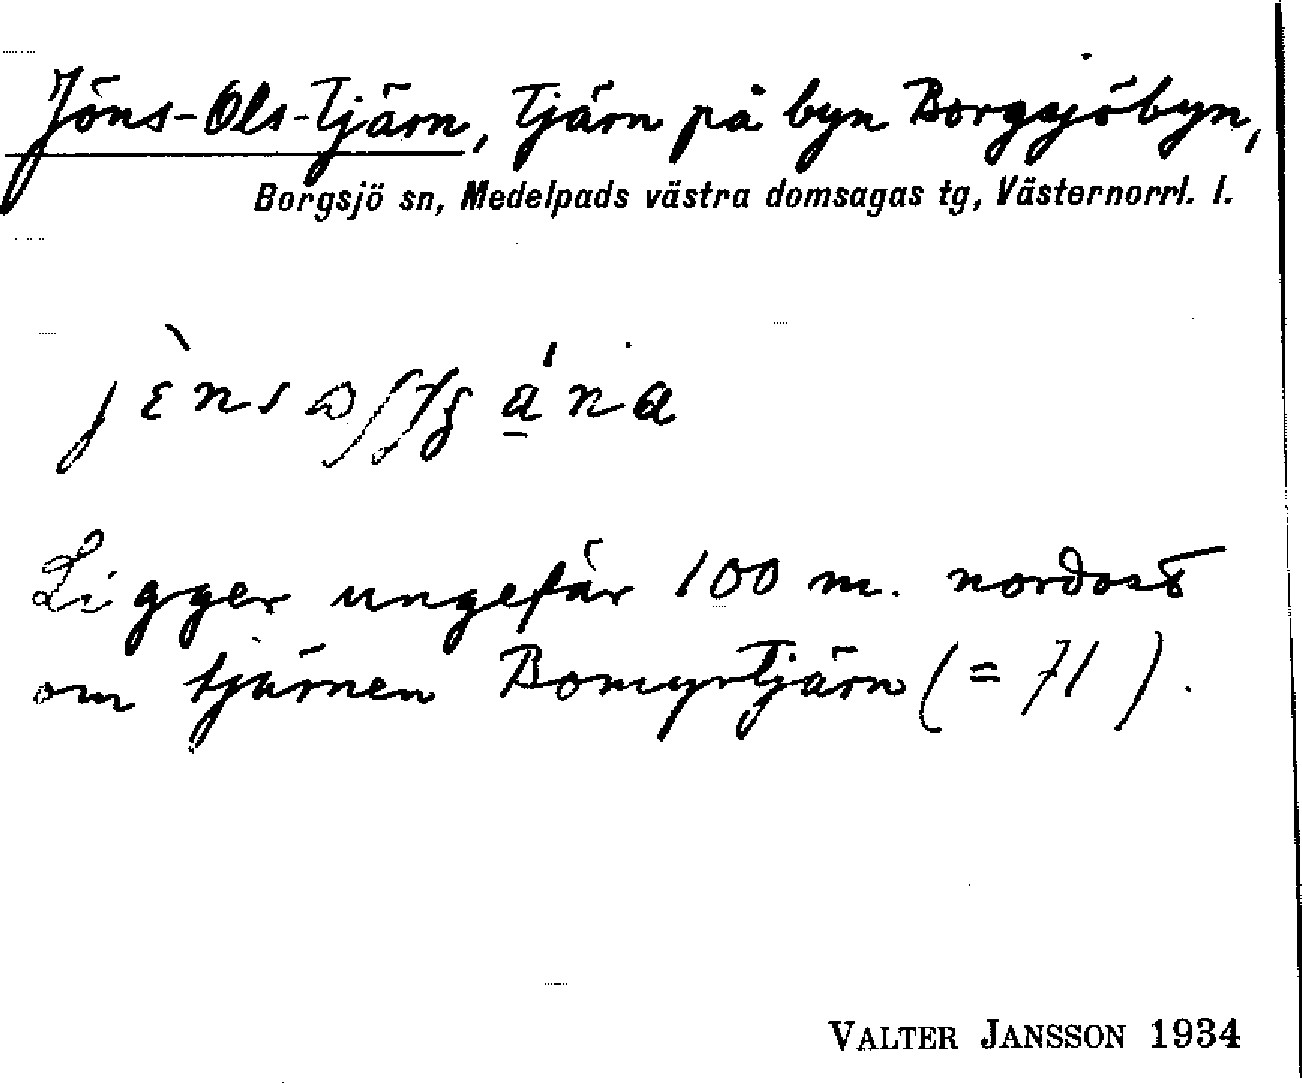 Jöns-Ols-Tjärn, Tjärn på byn Borgsjöbyn,
Borgsjö sn, Medelpads västra domsagas tg, Västernorrl. l.
Ligger ungefär 100 m. nordost
om tjärnen Bomyrtjärn (= 71).
VALTER JANSSON 1934